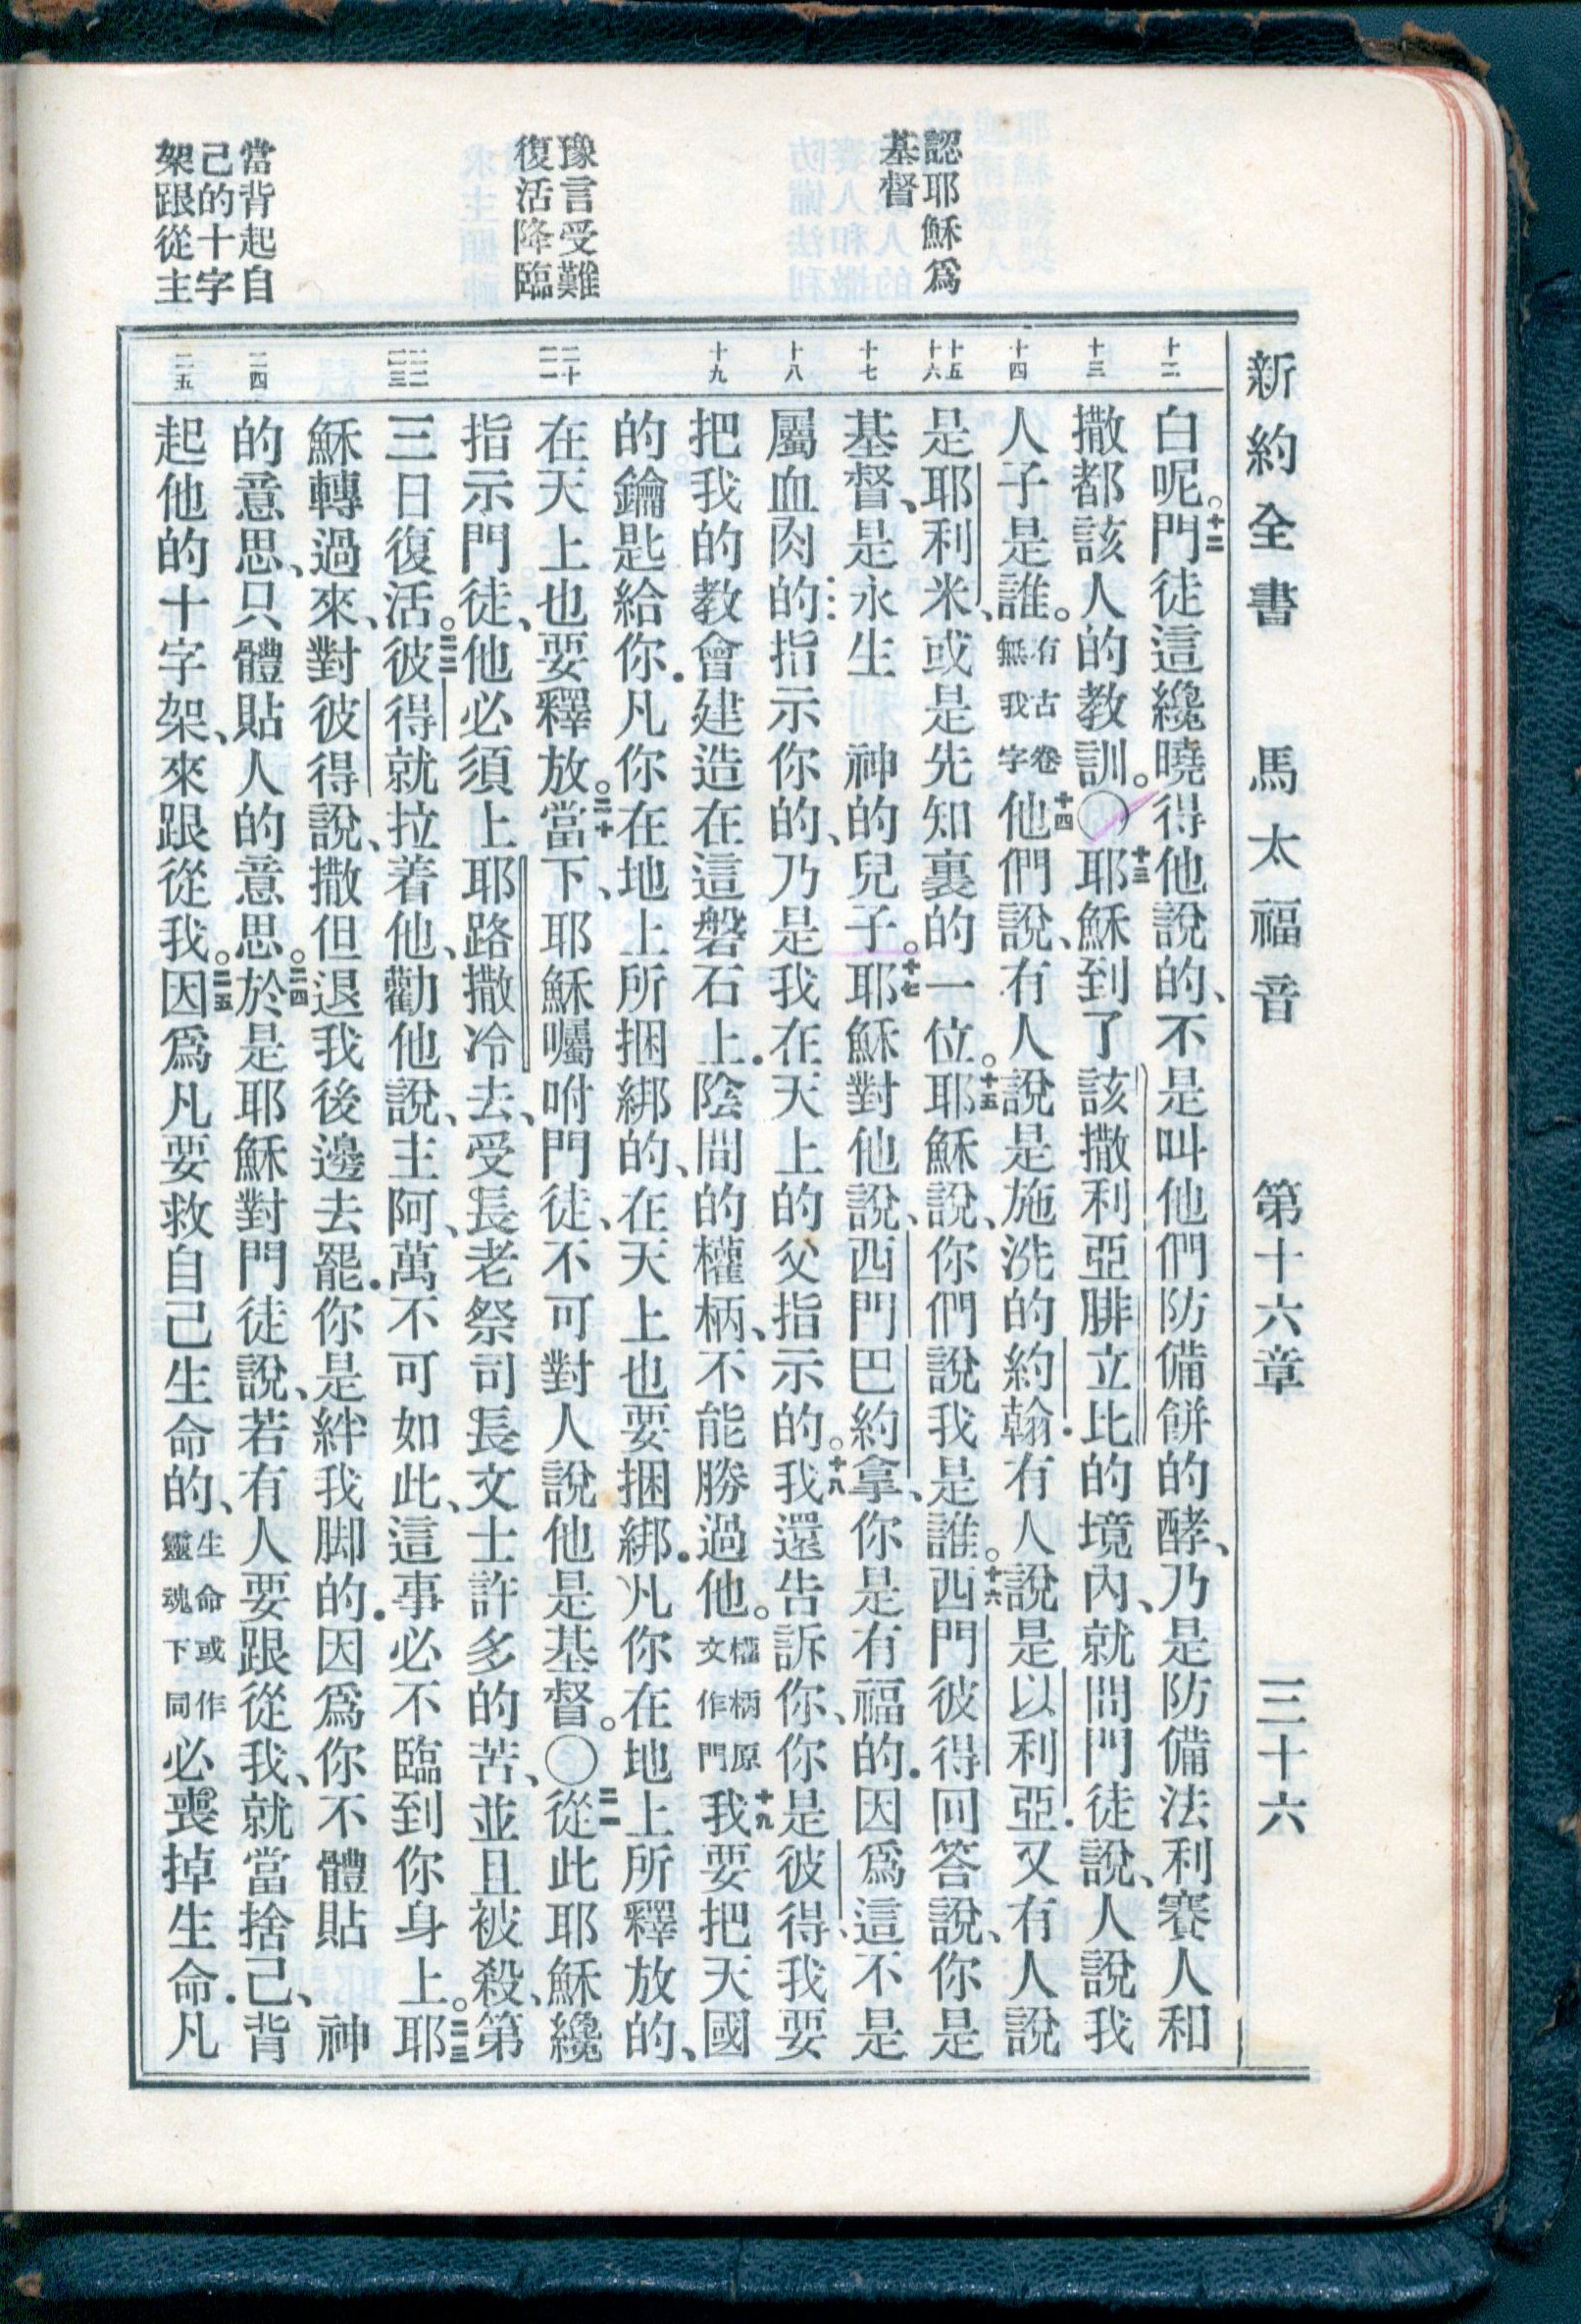 新約全書　馬太福音　第十六章　三十六
認耶穌爲
基督
豫言受難
復活降臨
當背起自
己的十字
架跟從主
十二
十三
十四
十五
十六
十七
十八
十九
二十
二一
二二
二三
二四
二五
白呢。十二門徒這纔曉得他說的、不是叫他們防備餅的酵、乃是防備法利賽人和
撒都該人的教訓。〇十三耶穌到了該撒利亞腓立比的境內、就問門徒說、人說我
人子是誰。有古卷無我字十四他們說、有人說是施洗的約翰.有人說是以利亞.又有人說
是耶利米、或是先知裏的一位。十五耶穌說、你們說我是誰。十六西門彼得回答說、你是
基督、是永生　神的兒子。十七耶穌對他說、西門巴約拿、你是有福的.因爲這不是
屬血肉的指示你的、乃是我在天上的父指示的。十八我還告訴你、你是彼得、我要
把我的教會建造在這磐石上.陰間的權柄、不能勝過他。權柄原文作門十九我要把天國
的鑰匙給你.凡你在地上所捆綁的、在天上也要捆綁.凡你在地上所釋放的、
在天上也要釋放。二十當下、耶穌囑咐門徒、不可對人說他是基督。〇二一從此耶穌纔
指示門徒、他必須上耶路撒冷去、受長老祭司長文士許多的苦、並且被殺、第
三日復活。二二彼得就拉着他、勸他說、主阿、萬不可如此、這事必不臨到你身上。二三耶
穌轉過來、對彼得說、撒但退我後邊去罷.你是絆我脚的.因爲你不體貼　神
的意思、只體貼人的意思。二四於是耶穌對門徒說、若有人要跟從我、就當捨己、背
起他的十字架、來跟從我。二五因爲凡要救自己生命的、生命或作靈魂下同必喪掉生命.凡